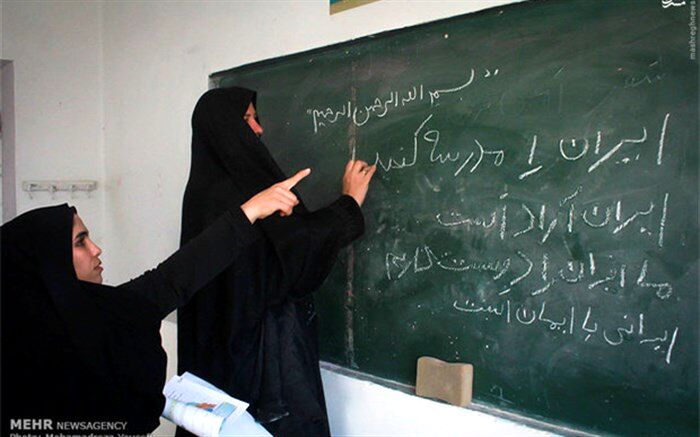 "بسم الله الرحمن الرحیم"
ایران را مدرسه
ایران آزاد است
ما ایران را دوست داریم
ایرانی با ایمان است
mashreghnews
MEHR NEWSAGENCY